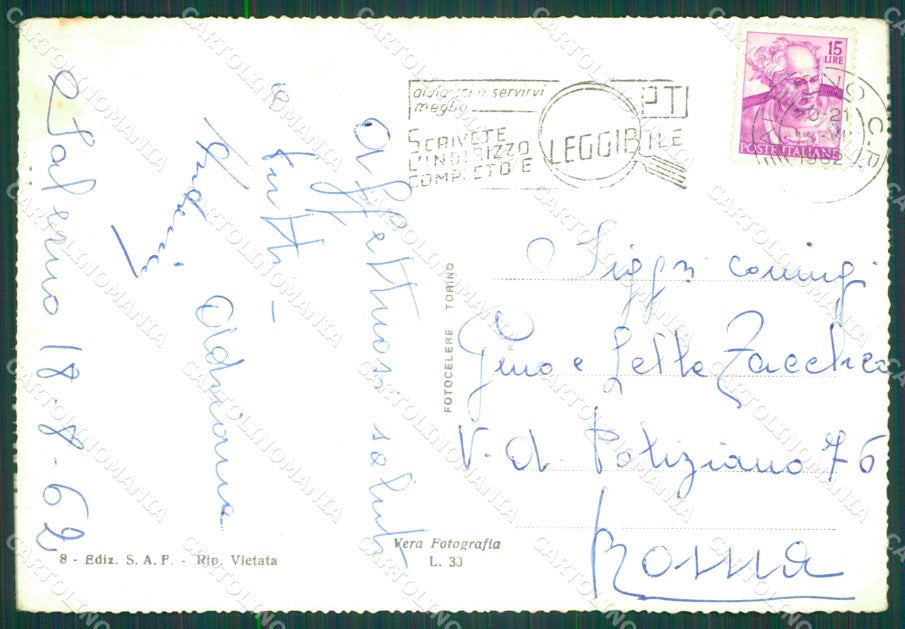 Salerno 18-8-62
Affettuosi saluti
a
tutti -
Adriana
aiutateci a servirvi
meglio
SCRIVETE
L'INDIRIZZO
COMPLETO E
LEGGIBILE
PT
15
LIRE
POSTE ITALIANE
1962
Sigg.ri coniugi
Gino e Lella Zacchea
V. A. Poliziano 76
Roma
FOTOCELERE TORINO
8 - Ediz. S. A. F. - Rip. Vietata
Vera Fotografia
L. 30
CARTOLINOMANIA